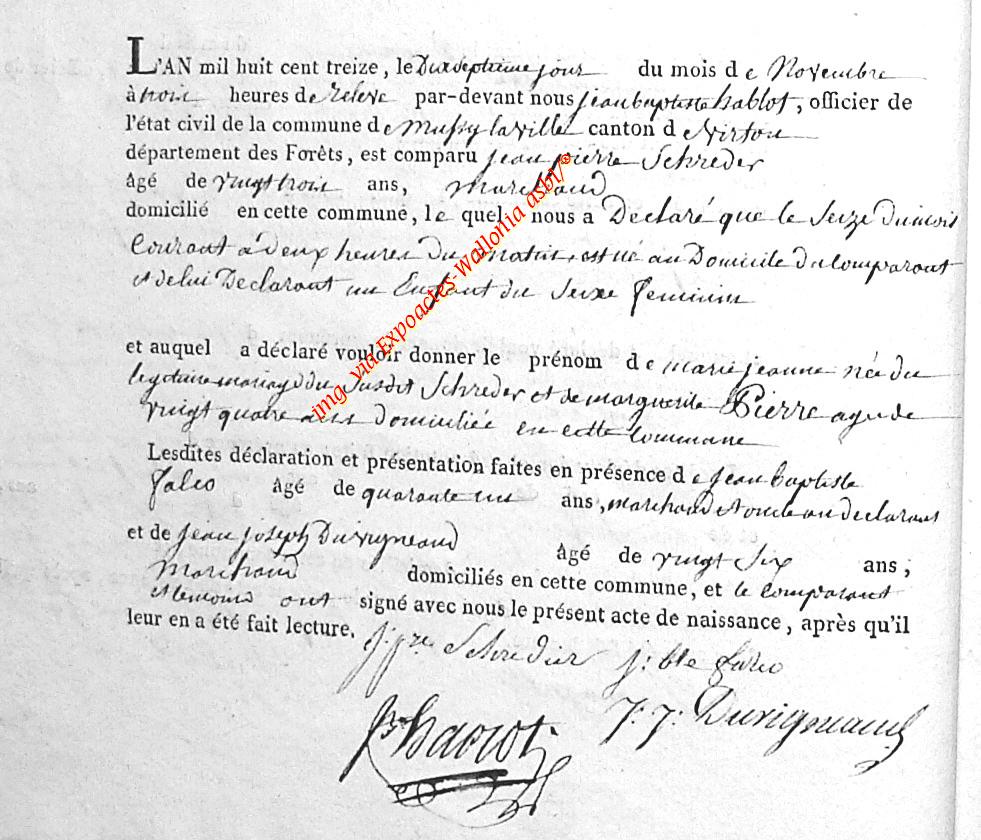 L'AN mil huit cent treize, le Dixseptieme jour du mois de Novembre
à trois heures de releve par-devant nous jean baptiste hablot, officier de
l'état civil de la commune de mussy la ville canton de virton
département des Forêts, est comparu jean pierre Schreder
âgé de vingt trois ans, marchand
domicilié en cette commune, le quel nous a Declaré que le Seize du mois
Courant à deux heures du matin, est né au Domicile du Comparant
et de lui Declarant un Enfant du Sexe feminin
et auquel a déclaré vouloir donner le prénom de marie jeanne née du
legitime mariage du Susdit Schreder et de marguerite Pierre agee de
vingt quatre ans domiciliée en cette Commune
Lesdites déclaration et présentation faites en présence de jean baptiste
falco âgé de quarante un ans, marchand et oncle au declarant
et de jean joseph Duvigneaud âgé de vingt Six ans;
marchand domiciliés en cette commune, et le comparant
et temoins ont signé avec nous le présent acte de naissance, après qu'il
leur en a été fait lecture.
j. pre Schreder j: bte falco
j: j: Duvigneaud
img via Expoactes-Wallonia asbl/©